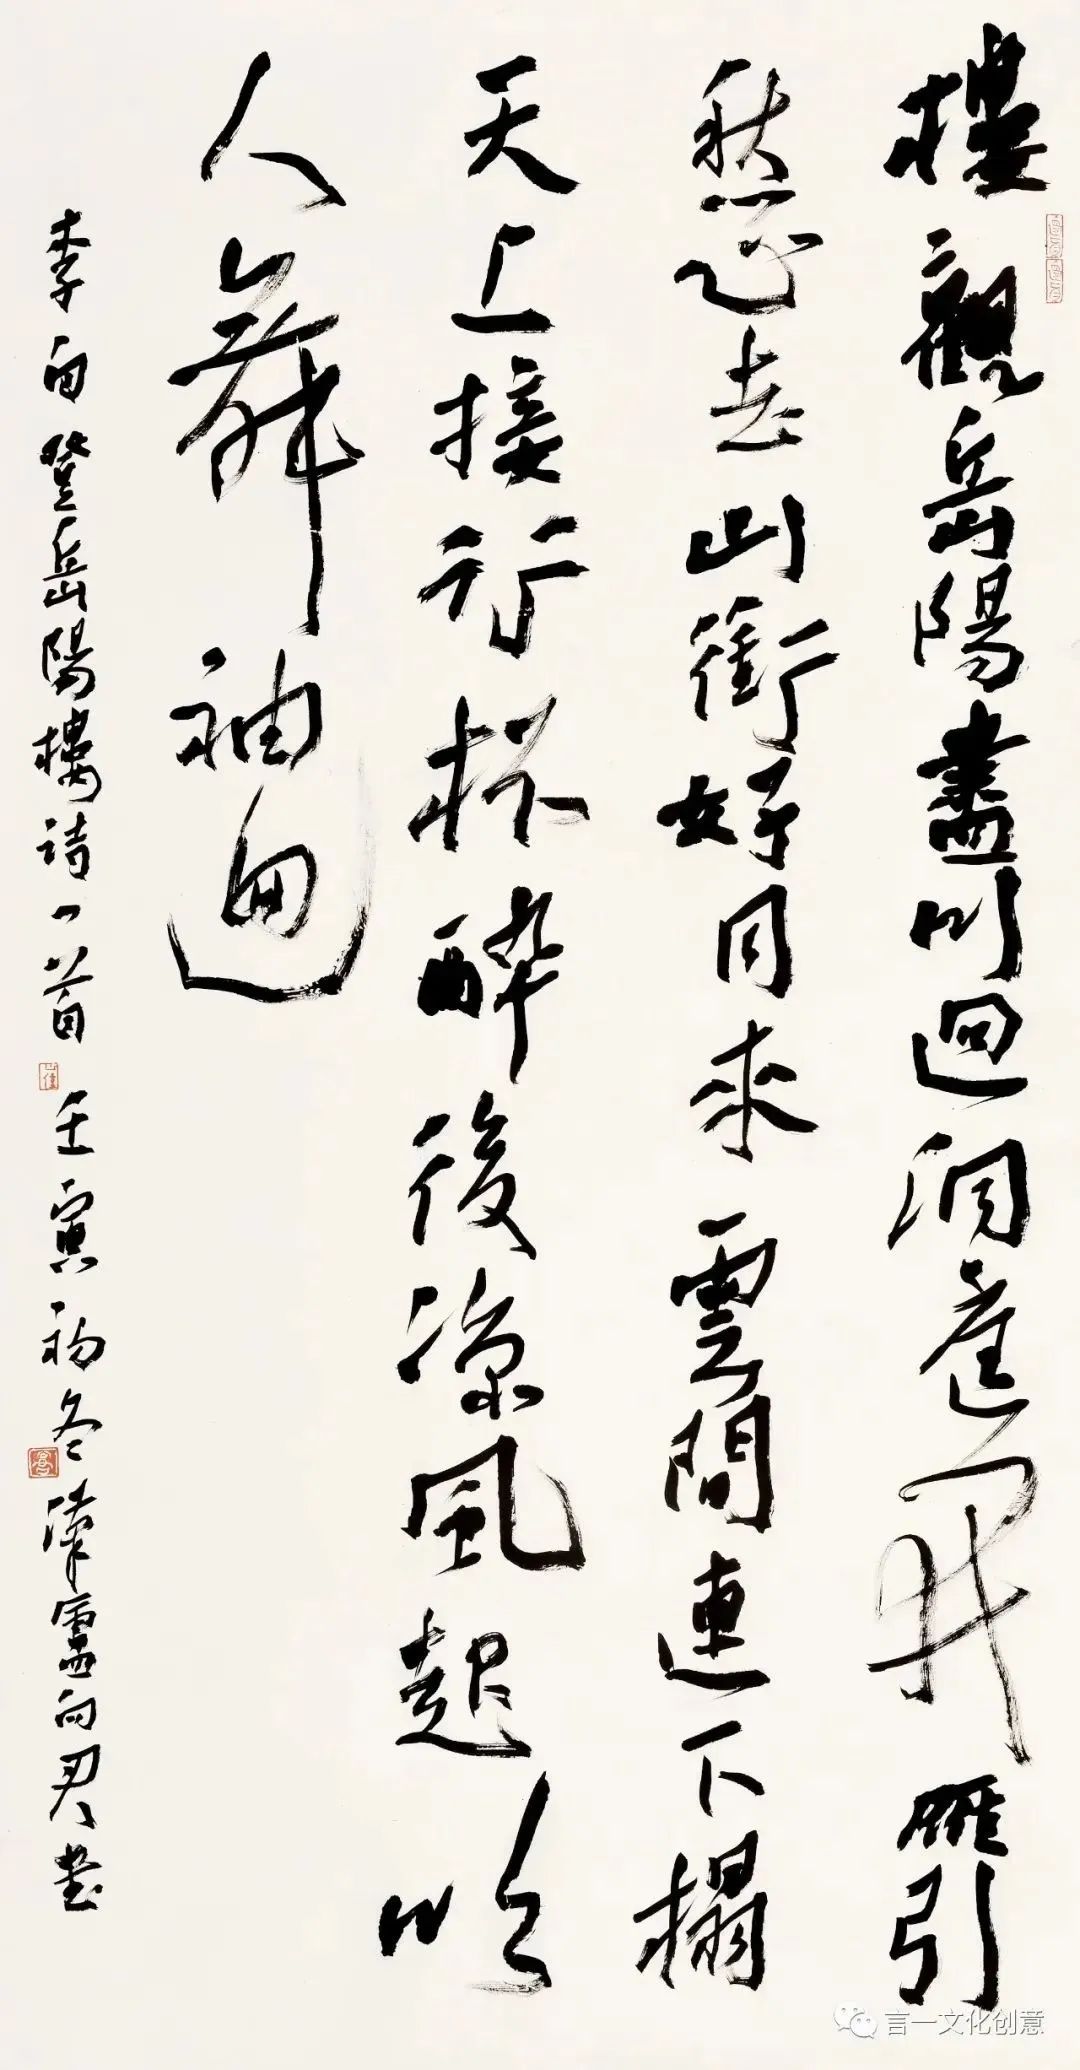 樓觀岳陽盡川迥洞庭開雁引
愁心去山銜好月來雲間連下榻
天上接行杯醉後涼風起吹
人舞袖迴
李白登岳陽樓詩一首 壬寅初冬 向君書
言一文化创意